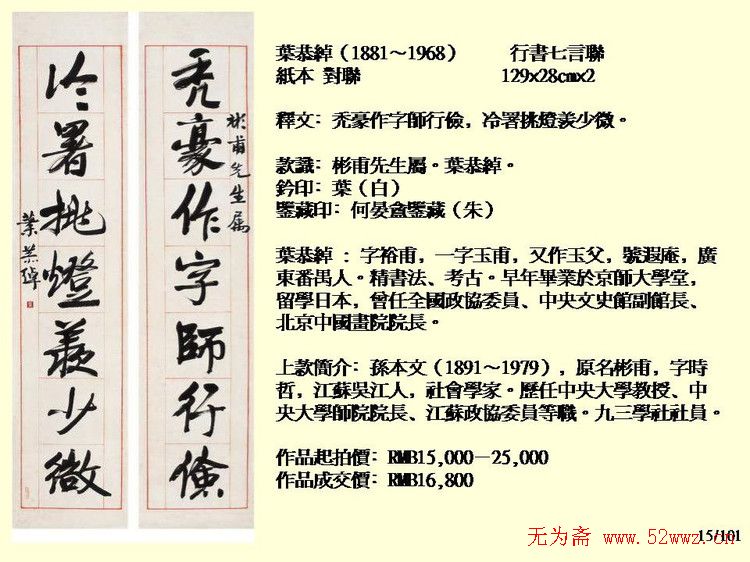 禿豪作字師行儉
彬甫先生属
冷署挑燈羨少微
葉恭綽
葉恭綽（1881～1968） 行書七言聯
紙本 對聯 129x28cmx2
釋文：禿豪作字師行儉，冷署挑燈羨少微。
款識：彬甫先生屬。葉恭綽。
鈐印：葉（白）
鑒藏印：何晏盦鑒藏（朱）
葉恭綽 ：字裕甫，一字玉甫，又作玉父，號遐庵，廣
東番禺人。精書法、考古。早年畢業於京師大學堂，
留學日本，曾任全國政協委員、中央文史館副館長、
北京中國畫院院長。
上款簡介：孫本文（1891～1979），原名彬甫，字時
哲，江蘇吳江人，社會學家。歷任中央大學教授、中
央大學師院院長、江蘇政協委員等職。九三學社社員。
作品起拍價：RMB15,000－25,000
作品成交價：RMB16,800
15/101
无为斋 www.52wwz.cn